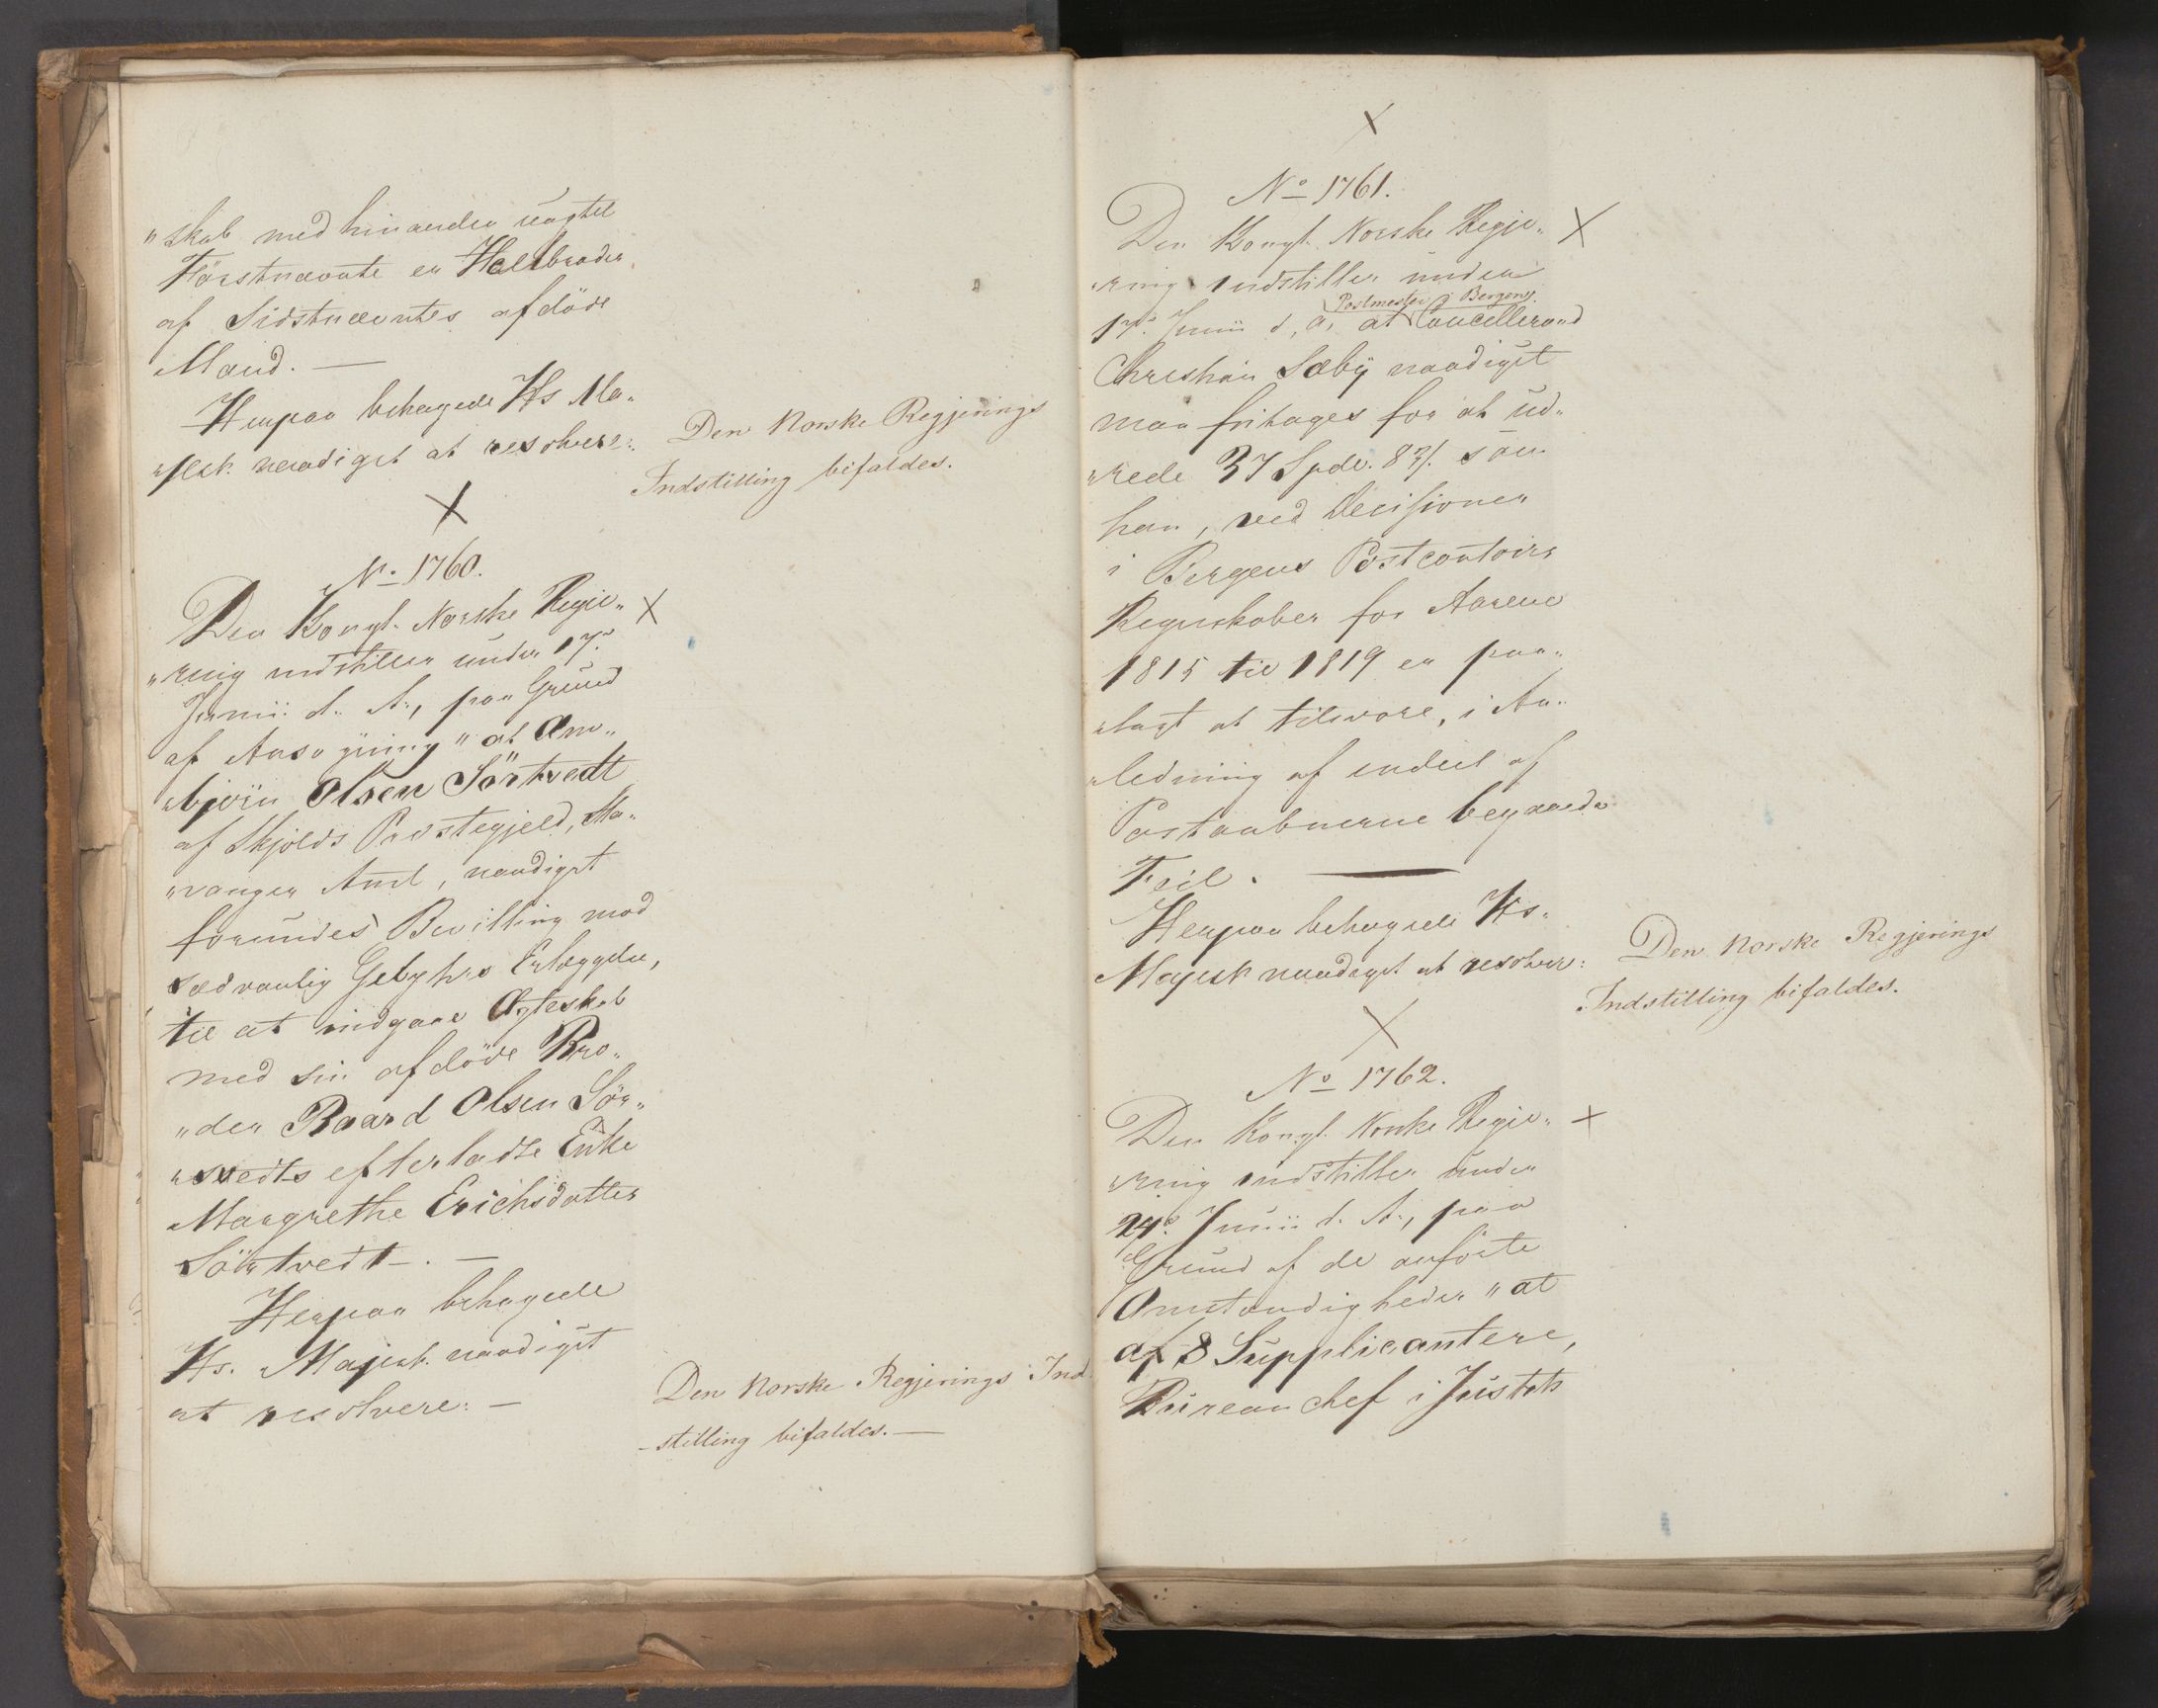 "skab med hinanden uagtet
Förstnævnte er Halvbroder
af Sidstnævntes afdöde
Mand. —
Herpaa behagede Hs Ma„
„jest. naadigst at resolvere:
Den Norske Regjerings
Indstilling bifaldes.
X
No 1760.
Den Kongl. Norske Regje„
X
„ring indstiller under 17de
Junii d. A., paa Grund
af Ansögning " at Am„
„björn Olsen Sörtvedt
af Skjolds Præstegjeld, Sta„
„vanger Amt, naadigst
forundes Bevilling mod
sædvanlig Gebyhrs Erlæggelse,
til at indgaae Ægteskab
med sin afdöde Bro„
„der Baard Olsen Sör„
„tvedts efterladte Enke
Margrethe Erichsdatter
Sörtvedt. —
Herpaa behagede
Hs. Majest. naadigst
at resolvere: —
Den Norske Regjerings Ind
-stilling bifaldes. —
X
No 1761.
Den Kongl. Norske Regje„
X
„ring indstiller under
Postmester i Bergen,
17de Junii d. A. at Cancelleraad
Christian Sæby naadigst
maa fritages for at ud„
„rede 37 Spdlr. 83 s. som
han, ved Decisionen
i Bergens Postcontoirs
Regnskaber for Aarene
1815 til 1819 er paa„
„lagt at tilsvare, i An„
„ledning af endeel af
Postaabnerne begaaede
Feil. —
Herpaa behagede Hs.
Majest naadigst at resolvere:
Den Norske Regjerings
Indstilling bifaldes.
X
No 1762.
Den Kongl. Norske Regje„
X
„ring indstiller under
24de Junii d. A., paa
Grund af de anförte
Omstændigheder " at
af 8 Supplicantere,
Bureauchef i Justits